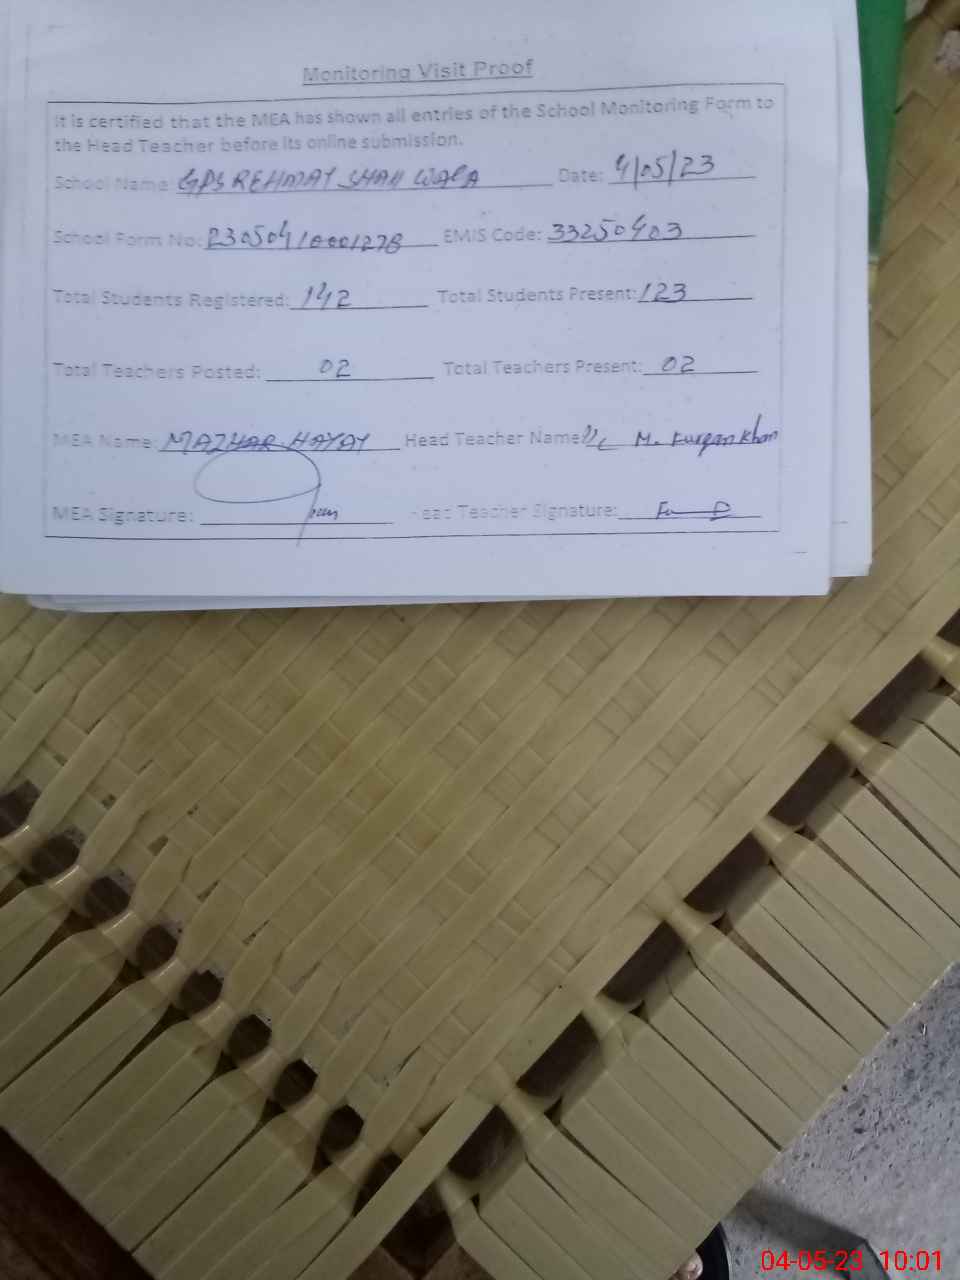 Monitoring Visit Proof
It is certified that the MEA has shown all entries of the School Monitoring Form to
the Head Teacher before its online submission.
School Name: GPS REHMAT SHAH WALA Date: 4/05/23
School Form No: EMIS Code: 33250403
Total Students Registered: 142 Total Students Present: 123
Total Teachers Posted: 02 Total Teachers Present: 02
MEA Name: MAZHAR HAYAT Head Teacher Name: M. Furqan Khan
MEA Signature: Head Teacher Signature:
04-05-23 10:01